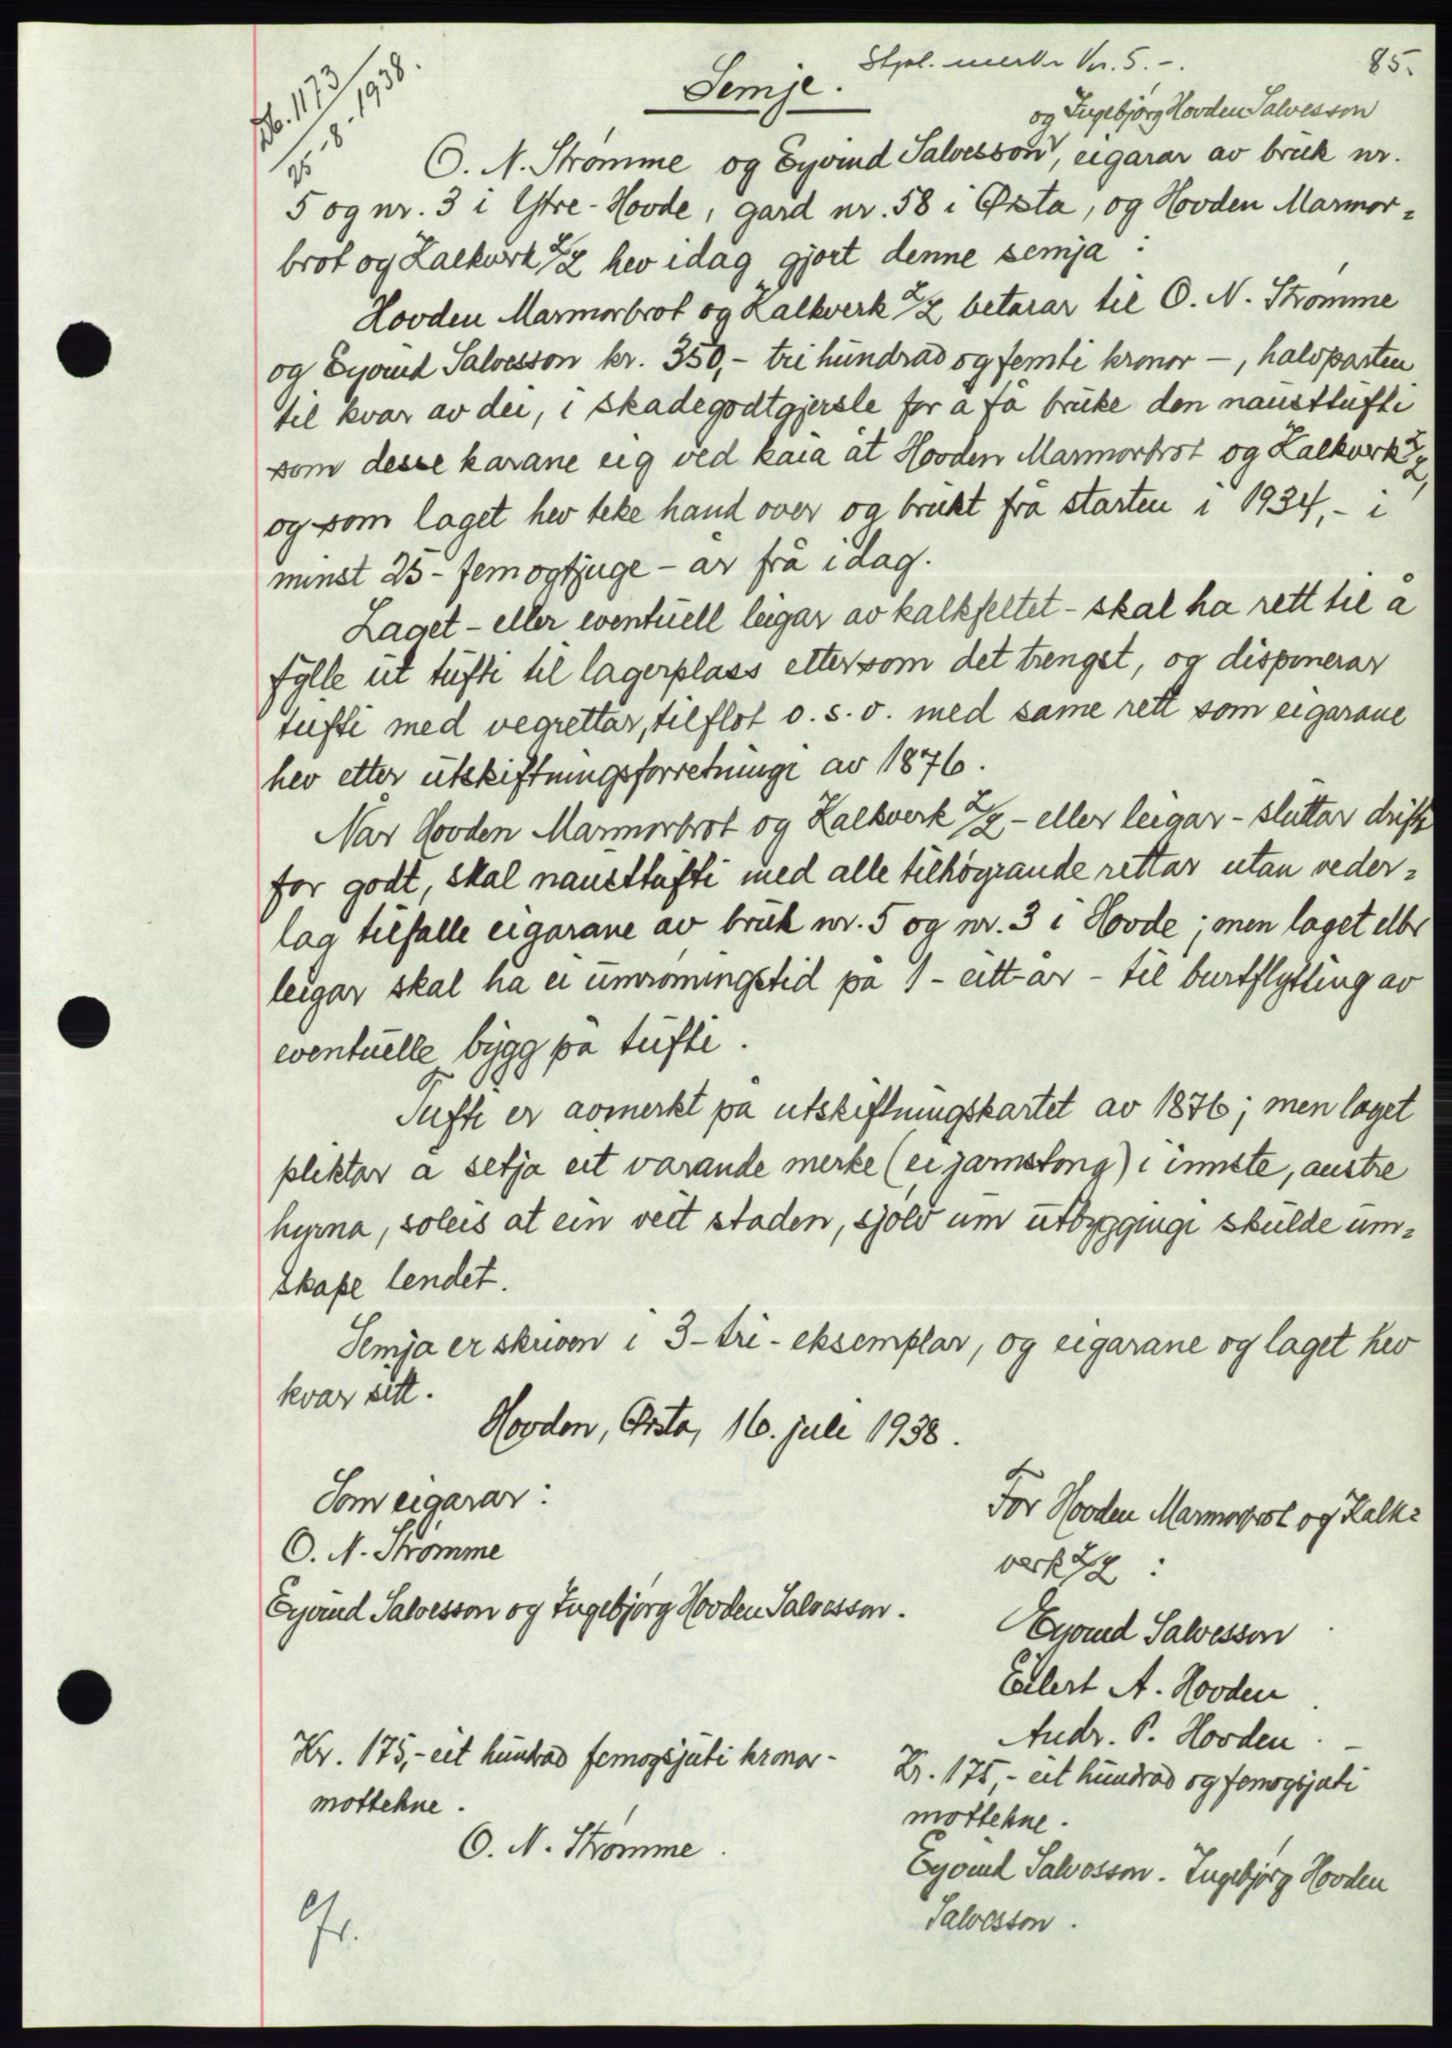 Db. 1173
25-8-1938.
Semje.
Stpl. merke kr. 5.-.
85.
og Ingebjørg Hovden Salvesson
O. N. Strømme og Eyvind Salvesson, eigarar av bruk nr.
5 og nr. 3 i Ytre-Hovde, gard nr. 58 i Ørsta, og Hovden Marmor=
brot og Kalkverk L/L hev idag gjort denne semja:
Hovden Marmorbrot og Kalkverk L/L betarar til O. N. Strømme
og Eyvind Salvesson kr. 350,- tri hundrad og femti kronor -, halvparten
til kvar av dei, i skadegodtgjersle for å få bruke den nausttufti
som desse karane eig ved kaia åt Hovden Marmorbrot og Kalkverk L/L,
og som laget hev teke hand over og brukt frå starten i 1934,- i
minst 25 - fem og tjuge - år frå idag.
Laget - eller eventuell leigar av kalkfeltet - skal ha rett til å
fylle ut tufti til lagerplass ettersom det trengst, og disponerar
tufti med vegrettar, tilflot o. s. v. med same rett som eigarane
hev etter utskiftningsforretningi av 1876.
Når Hovden Marmorbrot og Kalkverk L/L - eller leigar - sluttar drifti
for godt, skal nausttufti med alle tilhøyrande rettar utan veder=
lag tilfalle eigarane av bruk nr. 5 og nr. 3 i Hovde; men laget eller
leigar skal ha ei umrømingstid på 1 - eitt år - til burtflytting av
eventuelle bygg på tufti.
Tufti er avmerkt på utskiftningskartet av 1876; men laget
pliktar å setja eit varande merke (ei jarnstong) i innste, austre
hyrna, soleis at ein veit staden, sjølv um utbyggingi skulde um=
skape lendet.
Semja er skriven i 3 - tri - eksemplar, og eigarane og laget hev
kvar sitt.
Hovden, Ørsta, 16. juli 1938.
Som eigarar:
O. N. Strømme
Eyvind Salvesson og Ingebjørg Hovden Salvesson.
For Hovden Marmorbrot og Kalk=
verk L/L :
Eyvind Salvesson
Eilert A. Hovden
Andr. P. Hovden. -
Kr. 175,- eit hundrad femogsjuti kronor -
mottekne.
O. N. Strømme.
Kr. 175,- eit hundrad og femogsjuti
mottekne.
Eyvind Salvesson. Ingebjørg Hovden
Salvesson.